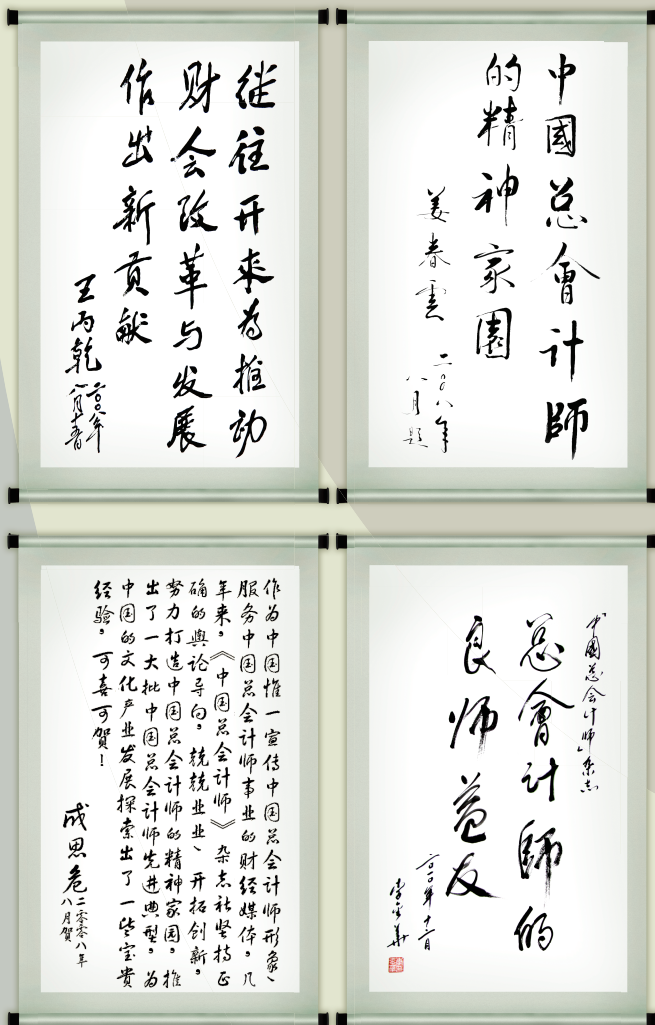 继往开来为推动
财会改革与发展
作出新贡献
王丙乾
二〇〇八年
八月
中國总會计師
的精神家園
姜春雲
二〇〇八年
八月题
作为中国惟一宣传中国总会计师形象、
服务中国总会计师事业的财经媒体，几
年来，《中国总会计师》杂志社坚持正
确的舆论导向，兢兢业业、开拓创新，
努力打造中国总会计师的精神家园，推
出了一大批中国总会计师先进典型，为
中国的文化产业发展探索出了一些宝贵
经验，可喜可賀！
成思危
二零零八年
八月賀
「中國总会计师」杂志
总會计師的
良师益友
李金華